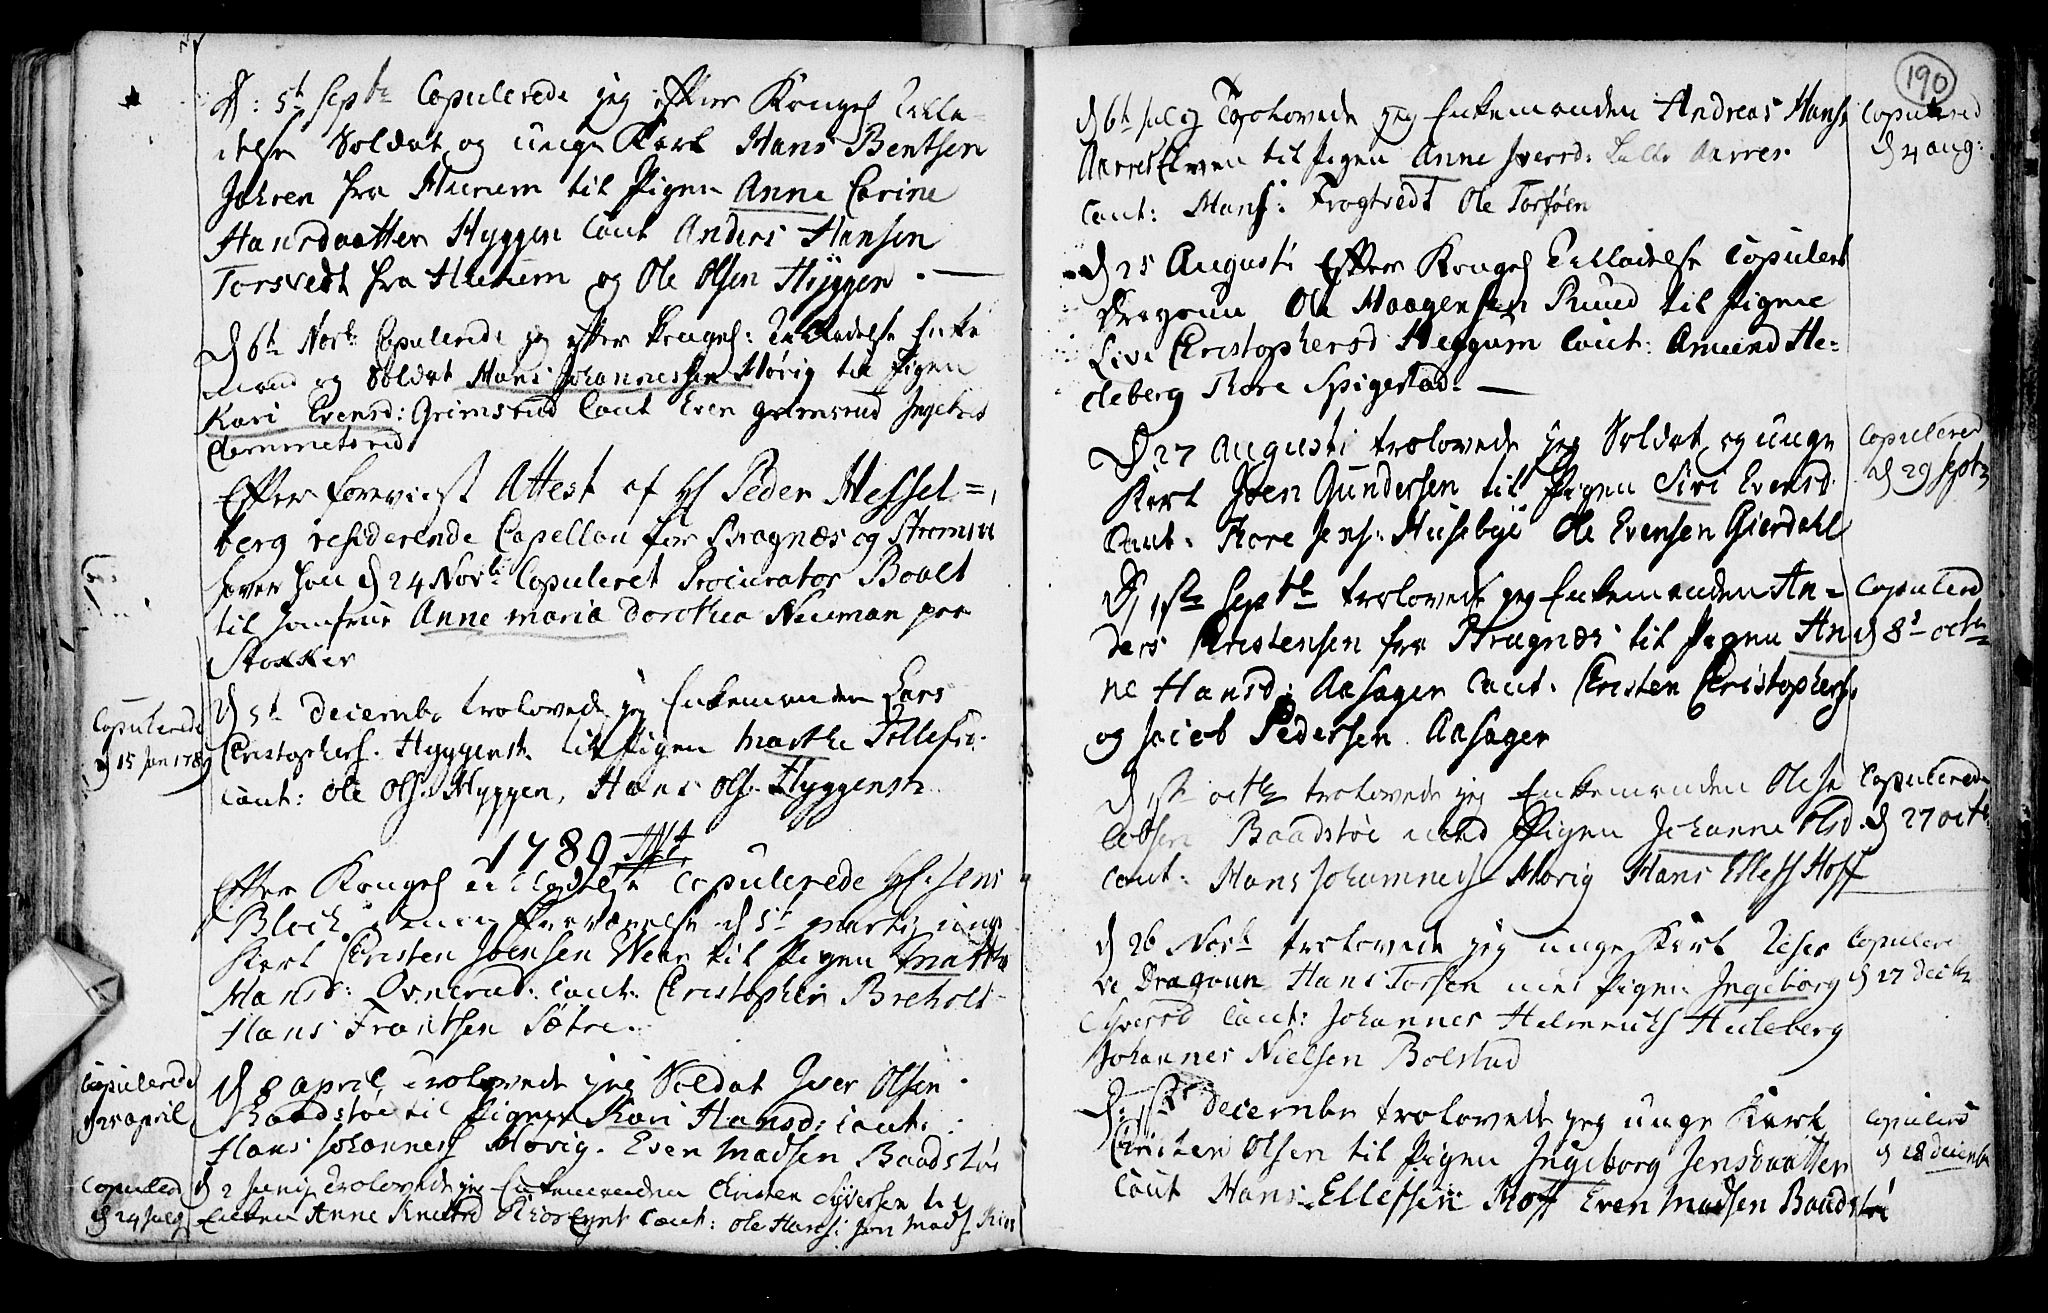 D: 5t Septr Copulerede jeg efter Kongel Tilla-
delse Soldat og unge Karl Hans Bentsen
fra Hurum til Pigen Anne Carine
Hansdaatter Hyggen Caut Anders Hansen
Torsvedt fra Hurum og Ole Olsen Hyggen.
D 6t Novbr Copulerede jeg efter Kongel: Tilladelse Enke
mand og Soldat Hans Johannessen Mørig til Pigen
Kari Evensd: Grimsrud Caut Even Grimsrud
Clemmetsrud
Efter foreviist Attest af Hr Peder Hessel=
berg residerende Capellan for Bragnæs og Strømsøe
haver han d 24 Novbr Copuleret Procurator Boalt
til Jomfrue Anne Maria Dorothea Neuman paa
Stokker
D 5t Decembr trolovede jeg Enkemanden Lars
Christophers. Hyggenst. til Pigen Marthe Tollefsd.
Caut: Ole Ols. Hyggen, Hans Ols. Hyggenstr.
Copulerede
d 15 Jan 1789
1789
Efter Kongel tilladelse Copulerede Hr Jens
Bloch i min Fraværelse d 5t Martij unge
Karl Christen Joensen Wear til Pigen Marthe
Hansd: Caut: Christopher Breholt
Hans Frantsen Sætre.
D 8 April trolovede jeg Soldat Iver Olsen
Baadstøe til Pigen Kari Hansd: Caut:
Hans Johannes Mørig. Even Madsen Baadstøe
Copulerede
d 25 April
d 2 Junij Trolovede jeg Enkemanden Christen Syversen til
Enken Anne Knutsd Caut: Ole Hans: Jon Mads
Copulered
d 24 July
190
d 6t July Trolovede jeg Enkemanden Andreas Hans
til Pigen Anne Iversd: Aarres
Caut: Hans: Frogtvedt Ole Torføen
Copulered
d 4 Aug:
d 25 Augusti Efter Kongel Tilladelse Copuleret
Dragoun Ole Haagensen Ruud til Pigen
Live Christophersd Heggum Caut: Amund He=
deberg Thore Spigestad.
D 27 Augusti trolovede jeg Soldat og unge
Karl Joen Gundersen til Pigen Siri Evensd
Caut. Thore Jens: Husebye Ole Evensen Gierdahl
Copulered
d 29 Septr
D 1ste Septbr trolovede jeg Enkemanden An=
ders Christensen fra Bragnæs til Pigen An
ne Hansd: Aasager Caut. Christen Christophers.
og Jacob Pedersen Aasager
Copulered
d 8t Octbr
D 1ste Octbr trolovede jeg Enkemanden Ole Ja
cobsen Baadstøe med Pigen Johanne Olsd.
Caut: Hans Johannes Mørig Hans Ellefs Hoff
Copulerede
d 27 Octbr
D 26 Novbr trolovede jeg unge Karl Reser
ve Dragoun Hans Torsen med Pigen Ingeborg
Syversd Caut: Johannes Helmericks Huleberg
Johannes Nielsen Bolstad
Copulered
d 27 Decbr
D: 1ste December trolovede jeg unge Karl
Christen Olsen til Pigen Ingeborg Jensdaatter
Caut Hans Ellefsen Hoff Even Madsen Baadstøe
Copulered
d 28 Decembr